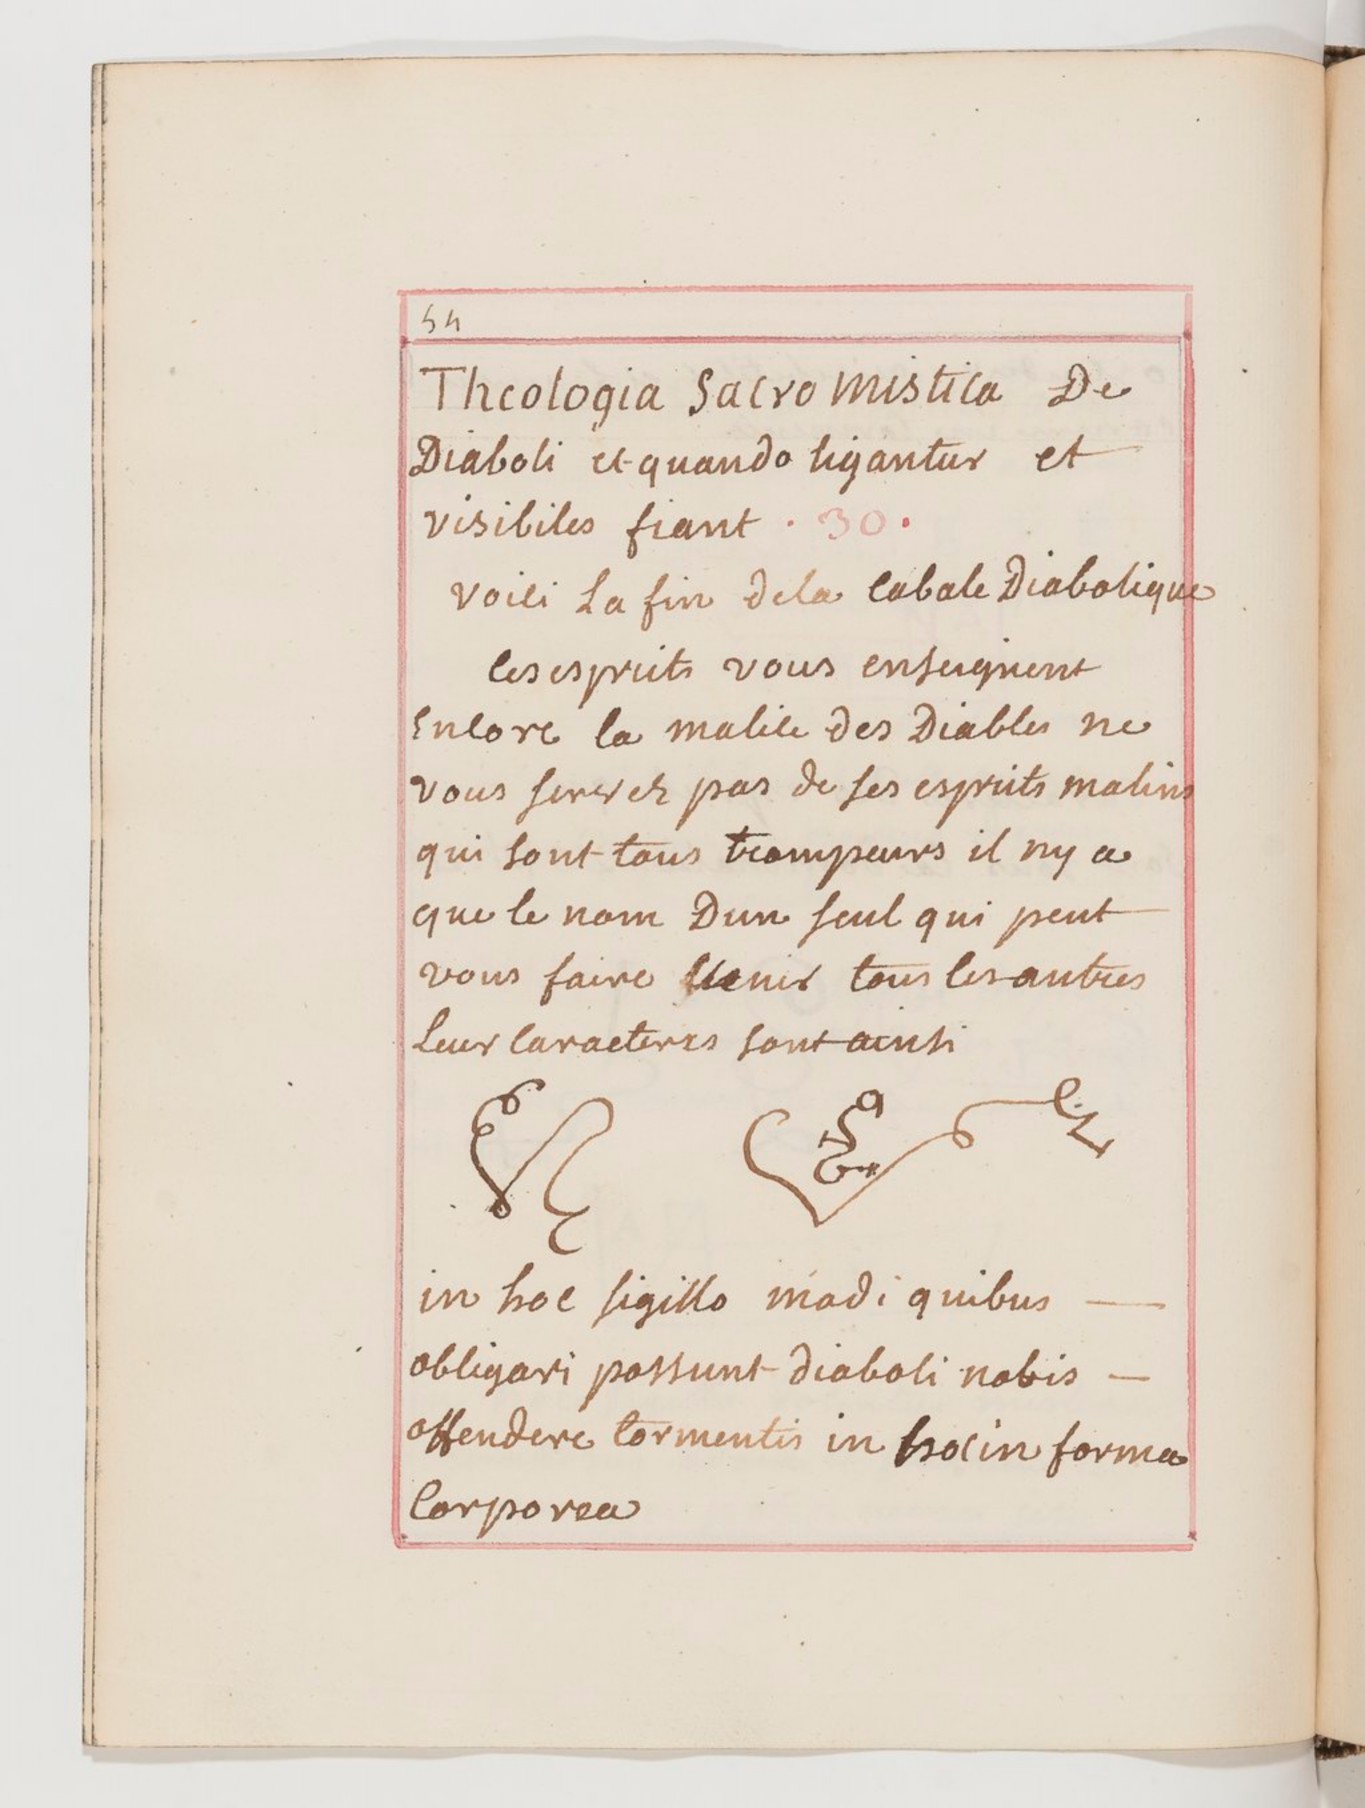 54
Theologia Sacro Mistica De
Diaboli et quando ligantur et
visibiles fiant . 30 .
Voici La fin dela Cabale Diabolique
les esprits vous enseignent
Encore la malice des Diables ne
vous servez pas de ses esprits malins
qui sont tous trompeurs il ny a
que le nom Dun seul qui peut
vous faire venir tous les autres
Leur Caracteres sont ainsi
in hoc sigillo modi quibus —
obligari possunt diaboli nobis —
offendere tormentis in hoc in forma
Corporea